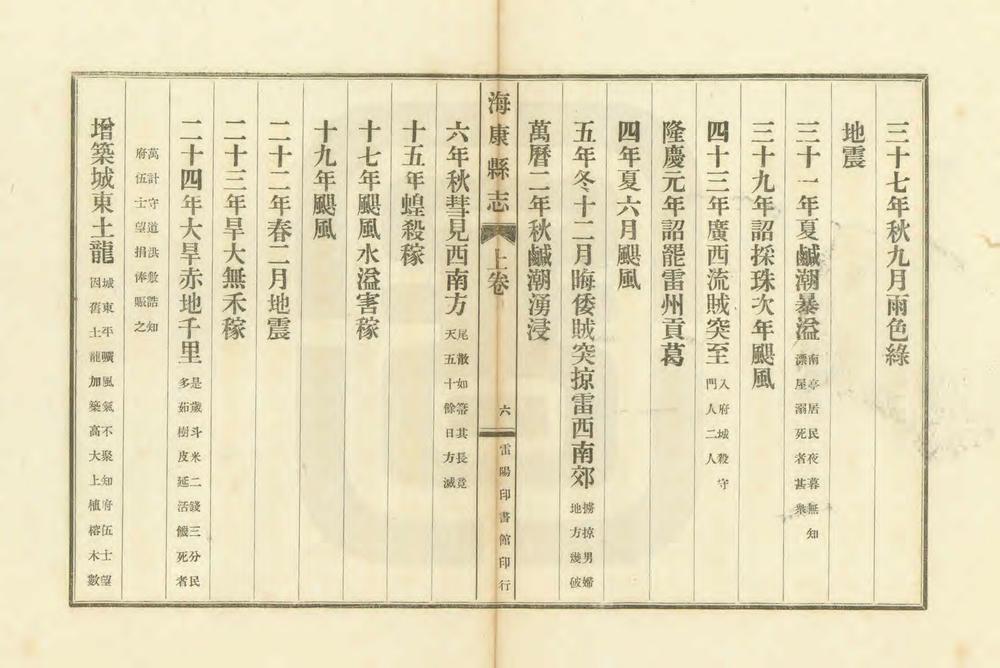 三十七年秋九月雨色綠
地震
三十一年夏鹹潮暴溢南亭居民夜暮無知漂屋溺死者甚衆
三十九年詔採珠次年颶風
四十三年廣西流賊突至入府城殺守門人二人
隆慶元年詔罷雷州貢葛
四年夏六月颶風
五年冬十二月晦倭賊突掠雷西南郊擄掠男婦地方幾破
萬曆二年秋鹹潮湧浸
海康縣志 上卷 六 雷陽印書館印行
六年秋彗見西南方尾散如箒其長竟天五十餘日方滅
十五年蝗殺稼
十七年颶風水溢害稼
十九年颶風
二十二年春二月地震
二十三年旱大無禾稼
二十四年大旱赤地千里是歲斗米二錢三分民多茹樹皮延活饑死者
萬計守道洪敷誥知府伍士望捐俸賑之
增築城東土龍城東平曠風氣不聚知府伍士望因舊土龍加築高大上植榕木數